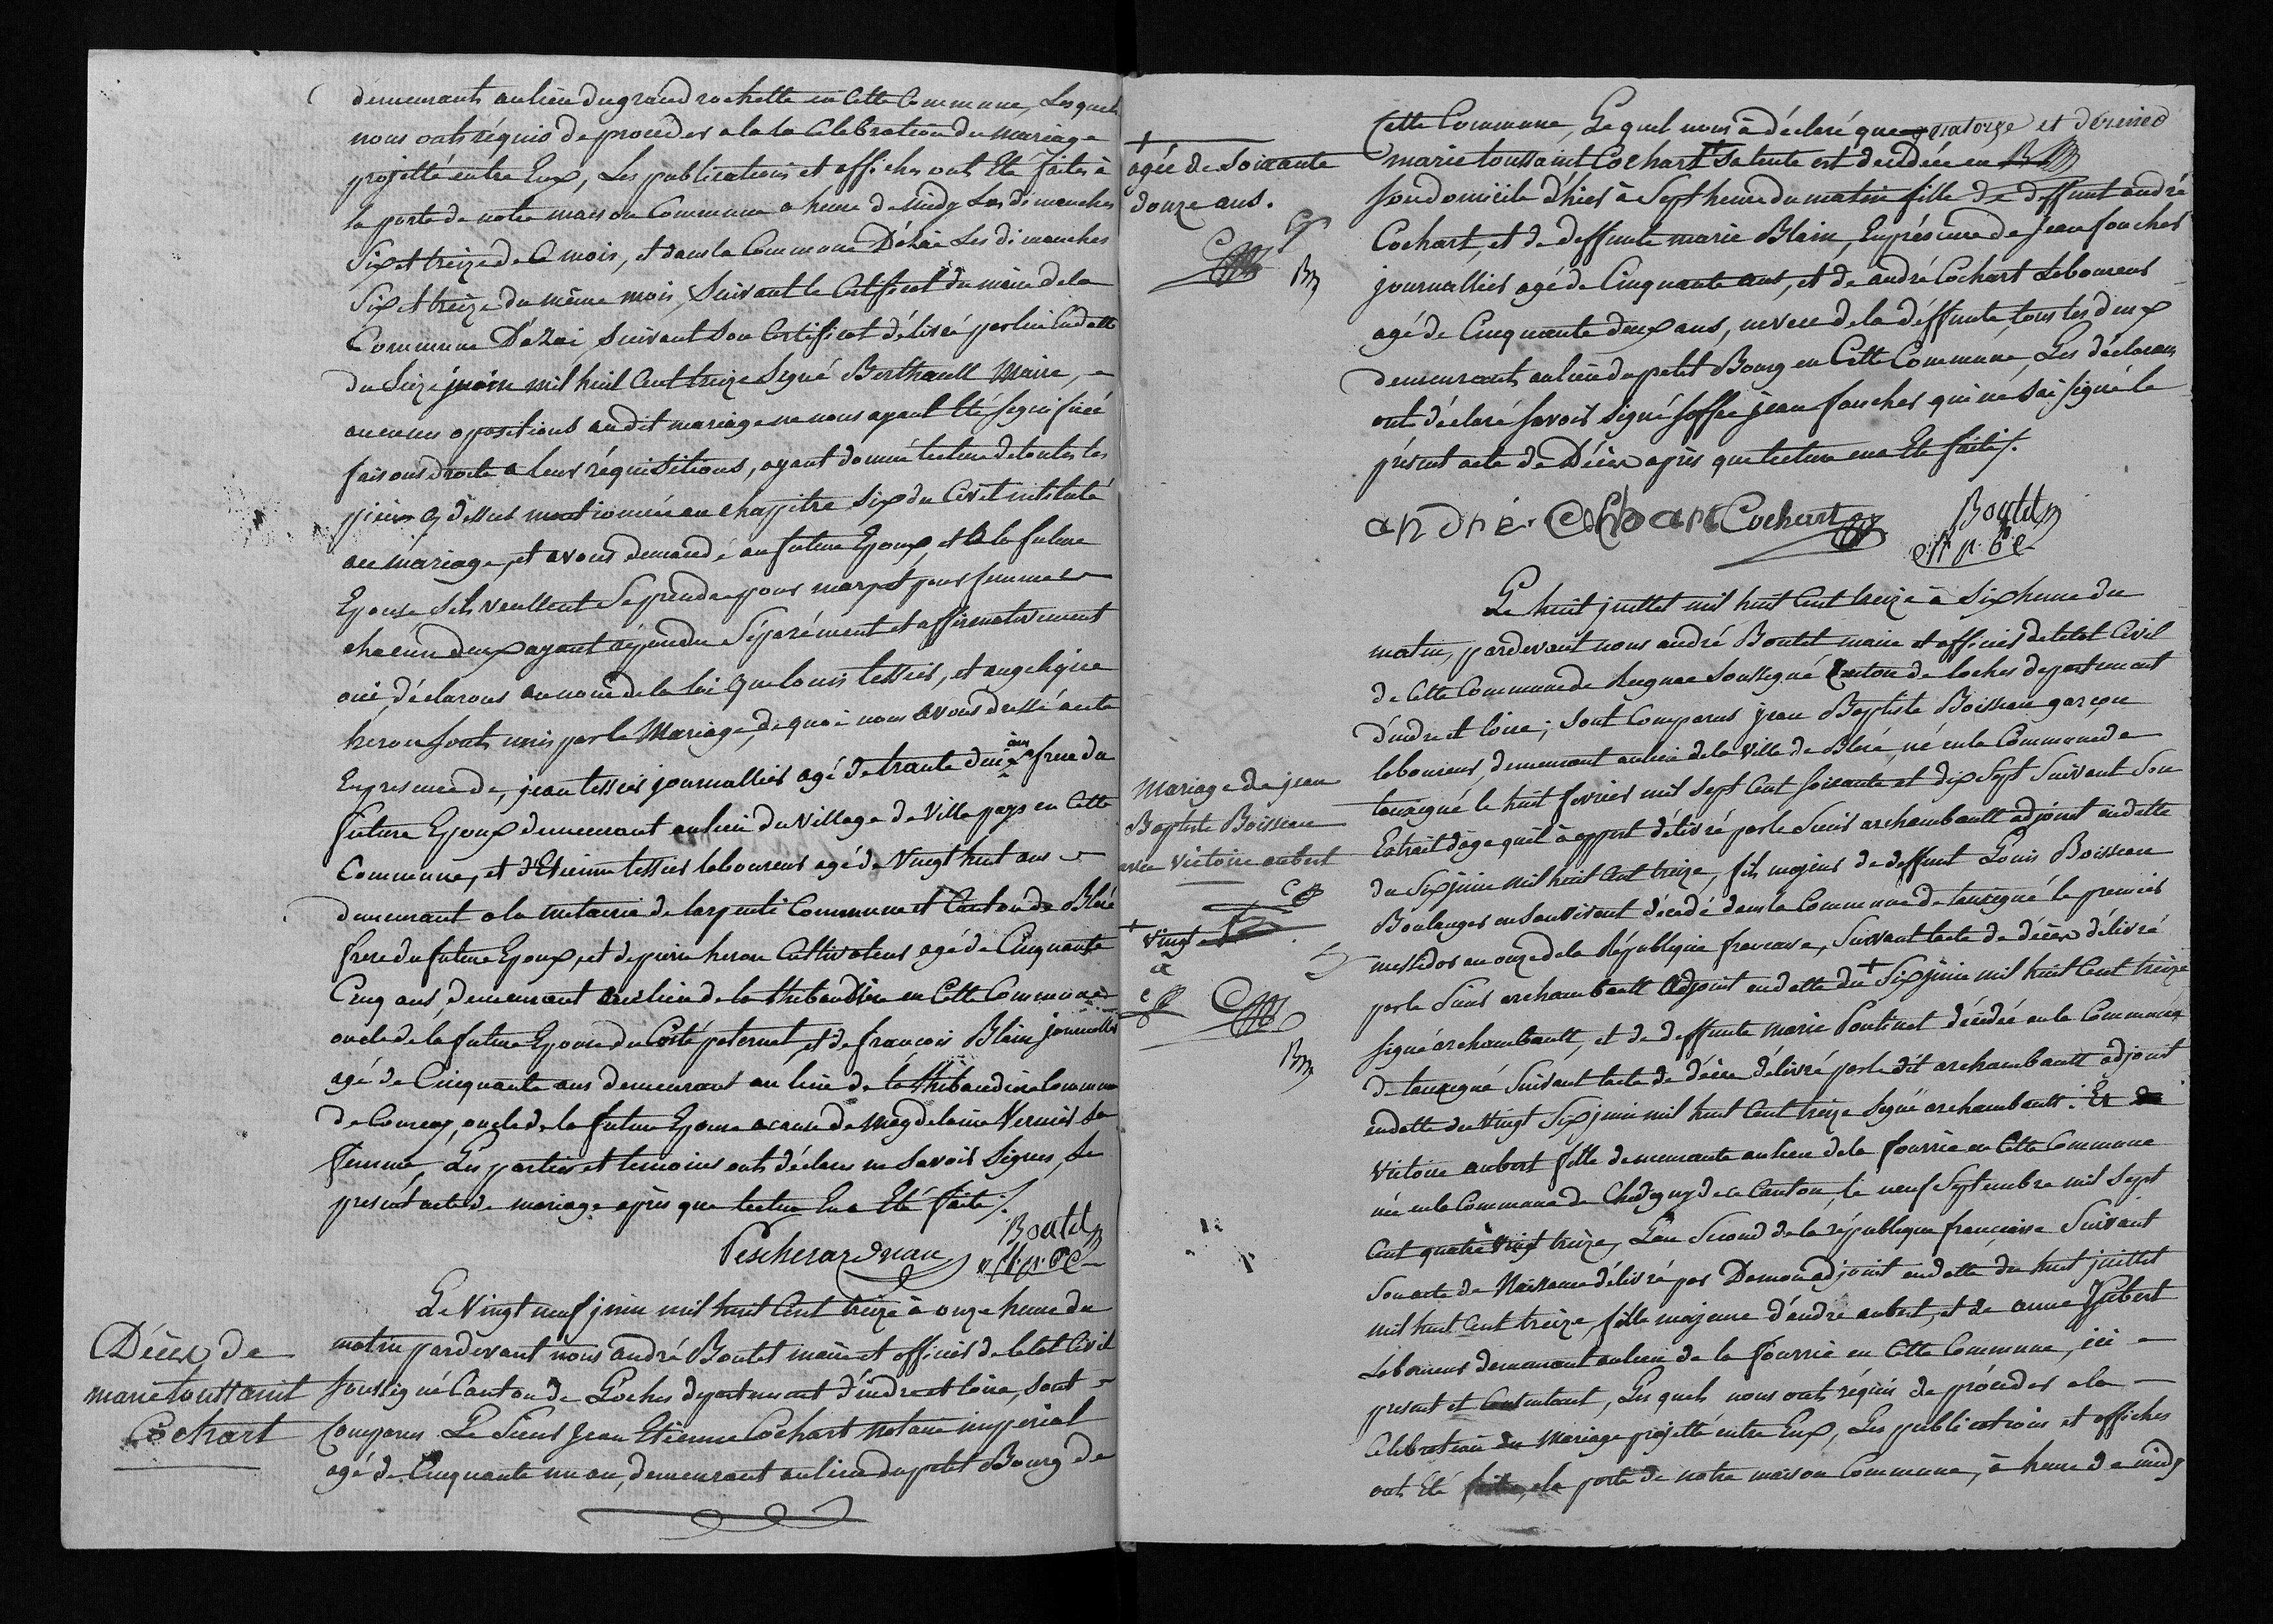 demeurants au lieu du grand rochette en Cette Commune, Lesquels
nous onts réquis de proceder a la la Célébration du mariage
projetté entre Eux, Les publications et affiches onts Eté faites à
la porte de notre maison Commune a heure de midy Les dimanches
Six et treize de Ce mois, et dans la Commune D'Azai Les dimanches
Six et treize du même mois, Suivant le Certificat du maire de la
Commune D'azai, Suivant Son Certificat délivré par lui En datte
du Seize juoin mil huit Cent treize Signé Berthault Maire,
aucunes opositions au dit mariage ne nous ayant Eté Signifiéé
faisons droite a leurs réquisitions, ayant donné lecture de toutes les
pieces Cy dessus mentionnée au chapitre Six du Civil intitulé
du mariage, et avons demandé au future Epoux, et à la future
Epouse S'ils veullent Se prendre pour mary et pour femme
chacun d'eux ayant répondu Séparément et affirmativement
oui, déclarons au nom de la loi que louis tessier, et angelique
heron sonts unis par le Mariage, de quoi nous avons dressé acte
En presence de, jean tessier journallier agé de trante deux ans frere du
future Epoux demeurant au lieu du Village de Ville pays en Cette
Commune, et d'Etienne tessier laboureur agé de Vingt huit ans
demeurant a la metairie de Commune et Canton de Bléré
frere du future Epoux, et de pierre heron Cultivateur agé de Cinquante
Cinq ans, demeurant au lieu de la thibaudiere en Cette Commune
oncle de la future Epouse du Coté paternel, et de francois Blain journallier
agé de Cinquante ans demeurant au lieu de la thibaudiere Commune
de Courçay, oncle de la future Epouse a cause de Magdelaine Vernier Sa
femme, Les parties et temoins onts déclaré ne Savoir Signer, Le
present acte de mariage après que lecture En a Eté faite ./.
Boutet
Pescherard
Le Vingt neuf juin mil huit Cent treize à onze heure du
Décès de
marie toussaint
Cochart
matin pardevant nous andré Boutet maire et officier de letat Civil
soussigné Canton de Loches departement d'indre et loire, sont
Comparus Le Sieur Jean Etienne Cochart notaire imperial
agé de Cinquante un an, demeurant au lieu du petit Bourg de
Cette Commune, Lequel nous à déclaré que quatorze et dernier
+
agée de Soixante
douze ans.
marie toussaint Cochart + Sa tente est décédée en
son domicile d'hier à Sept heure du matin fille de deffunt andré
Cochart, et de deffunte marie Blain, En présence de jean foucher
journallier agé de Cinquante ans, et de andré Cochart Laboureur
agé de Cinquante deux ans, neveu de la deffunte, tous les deux
demeurants au lieu du petit Bourg en Cette Commune, Les déclarans
onts déclaré savoir Signé jean foucher qui ne Sai Signé le
présent acte de Décès après que lecture en a Eté faite ./.
andré Cohart Cochart Boutet
Le huit juillet mil huit Cent treize à Six heure du
matin, pardevant nous andré Boutet maire et officier de letat Civil
de Cette Commune de Reignac Soussigné Canton de loches departement
d'indre et loire; Sont Comparus jean Baptiste Boisseau garçon
laboureur, demeurant au lieu de la Ville de Bléré, né en la Commune de
Mariage de jean
Baptiste Boisseau
avec Victoire aubert
tauxigné le huit fevrier mil sept Cent soixante et dix Sept Suivant Son
Extrait d'age quil à apport délivré par le Sieur archambault adjoint en datte
du Six juin mil huit Cent treize, fils majeur de deffunt Louis Boisseau
Boulanger en Son Vivant décédé dans la Commune de tauxigné le premier
messidor an onze de la République francaise, Suivant l'acte de décès délivré
+ vingt
par le Sieur archambault adjoint en datte du + Six juin mil huit Cent treize
signé archambault, et de deffunte marie Poutinet décédée en la Commune
de tauxigné Suivant l'acte de décès délivré par le dit archambault adjoint
en datte du Vingt Six juin mil huit Cent treize Signé archambault. Et
Victoire aubert fille demeurante au lieu de la fourrie en Cette Commune
née en la Commune de Chedigny de Ce Canton, le neuf Septembre mil Sept
Cent quatre Vingt treize, L'an Second de la république françaisse Suivant
Son acte de Naissance délivré par Damon adjoint en datte du huit juillet
mil huit Cent treize, fille majeure d'andré aubert, et de anne
Laboureur demeurant au lieu de la fourrie en Cette Commune, ici
present et Consentant, Lesquels nous onts réquis de procéder a la
Célébration du Mariage projetté entre Eux, Les publications et affiches
onts Eté faites, a la porte de notre maison Commune, à heure de midy